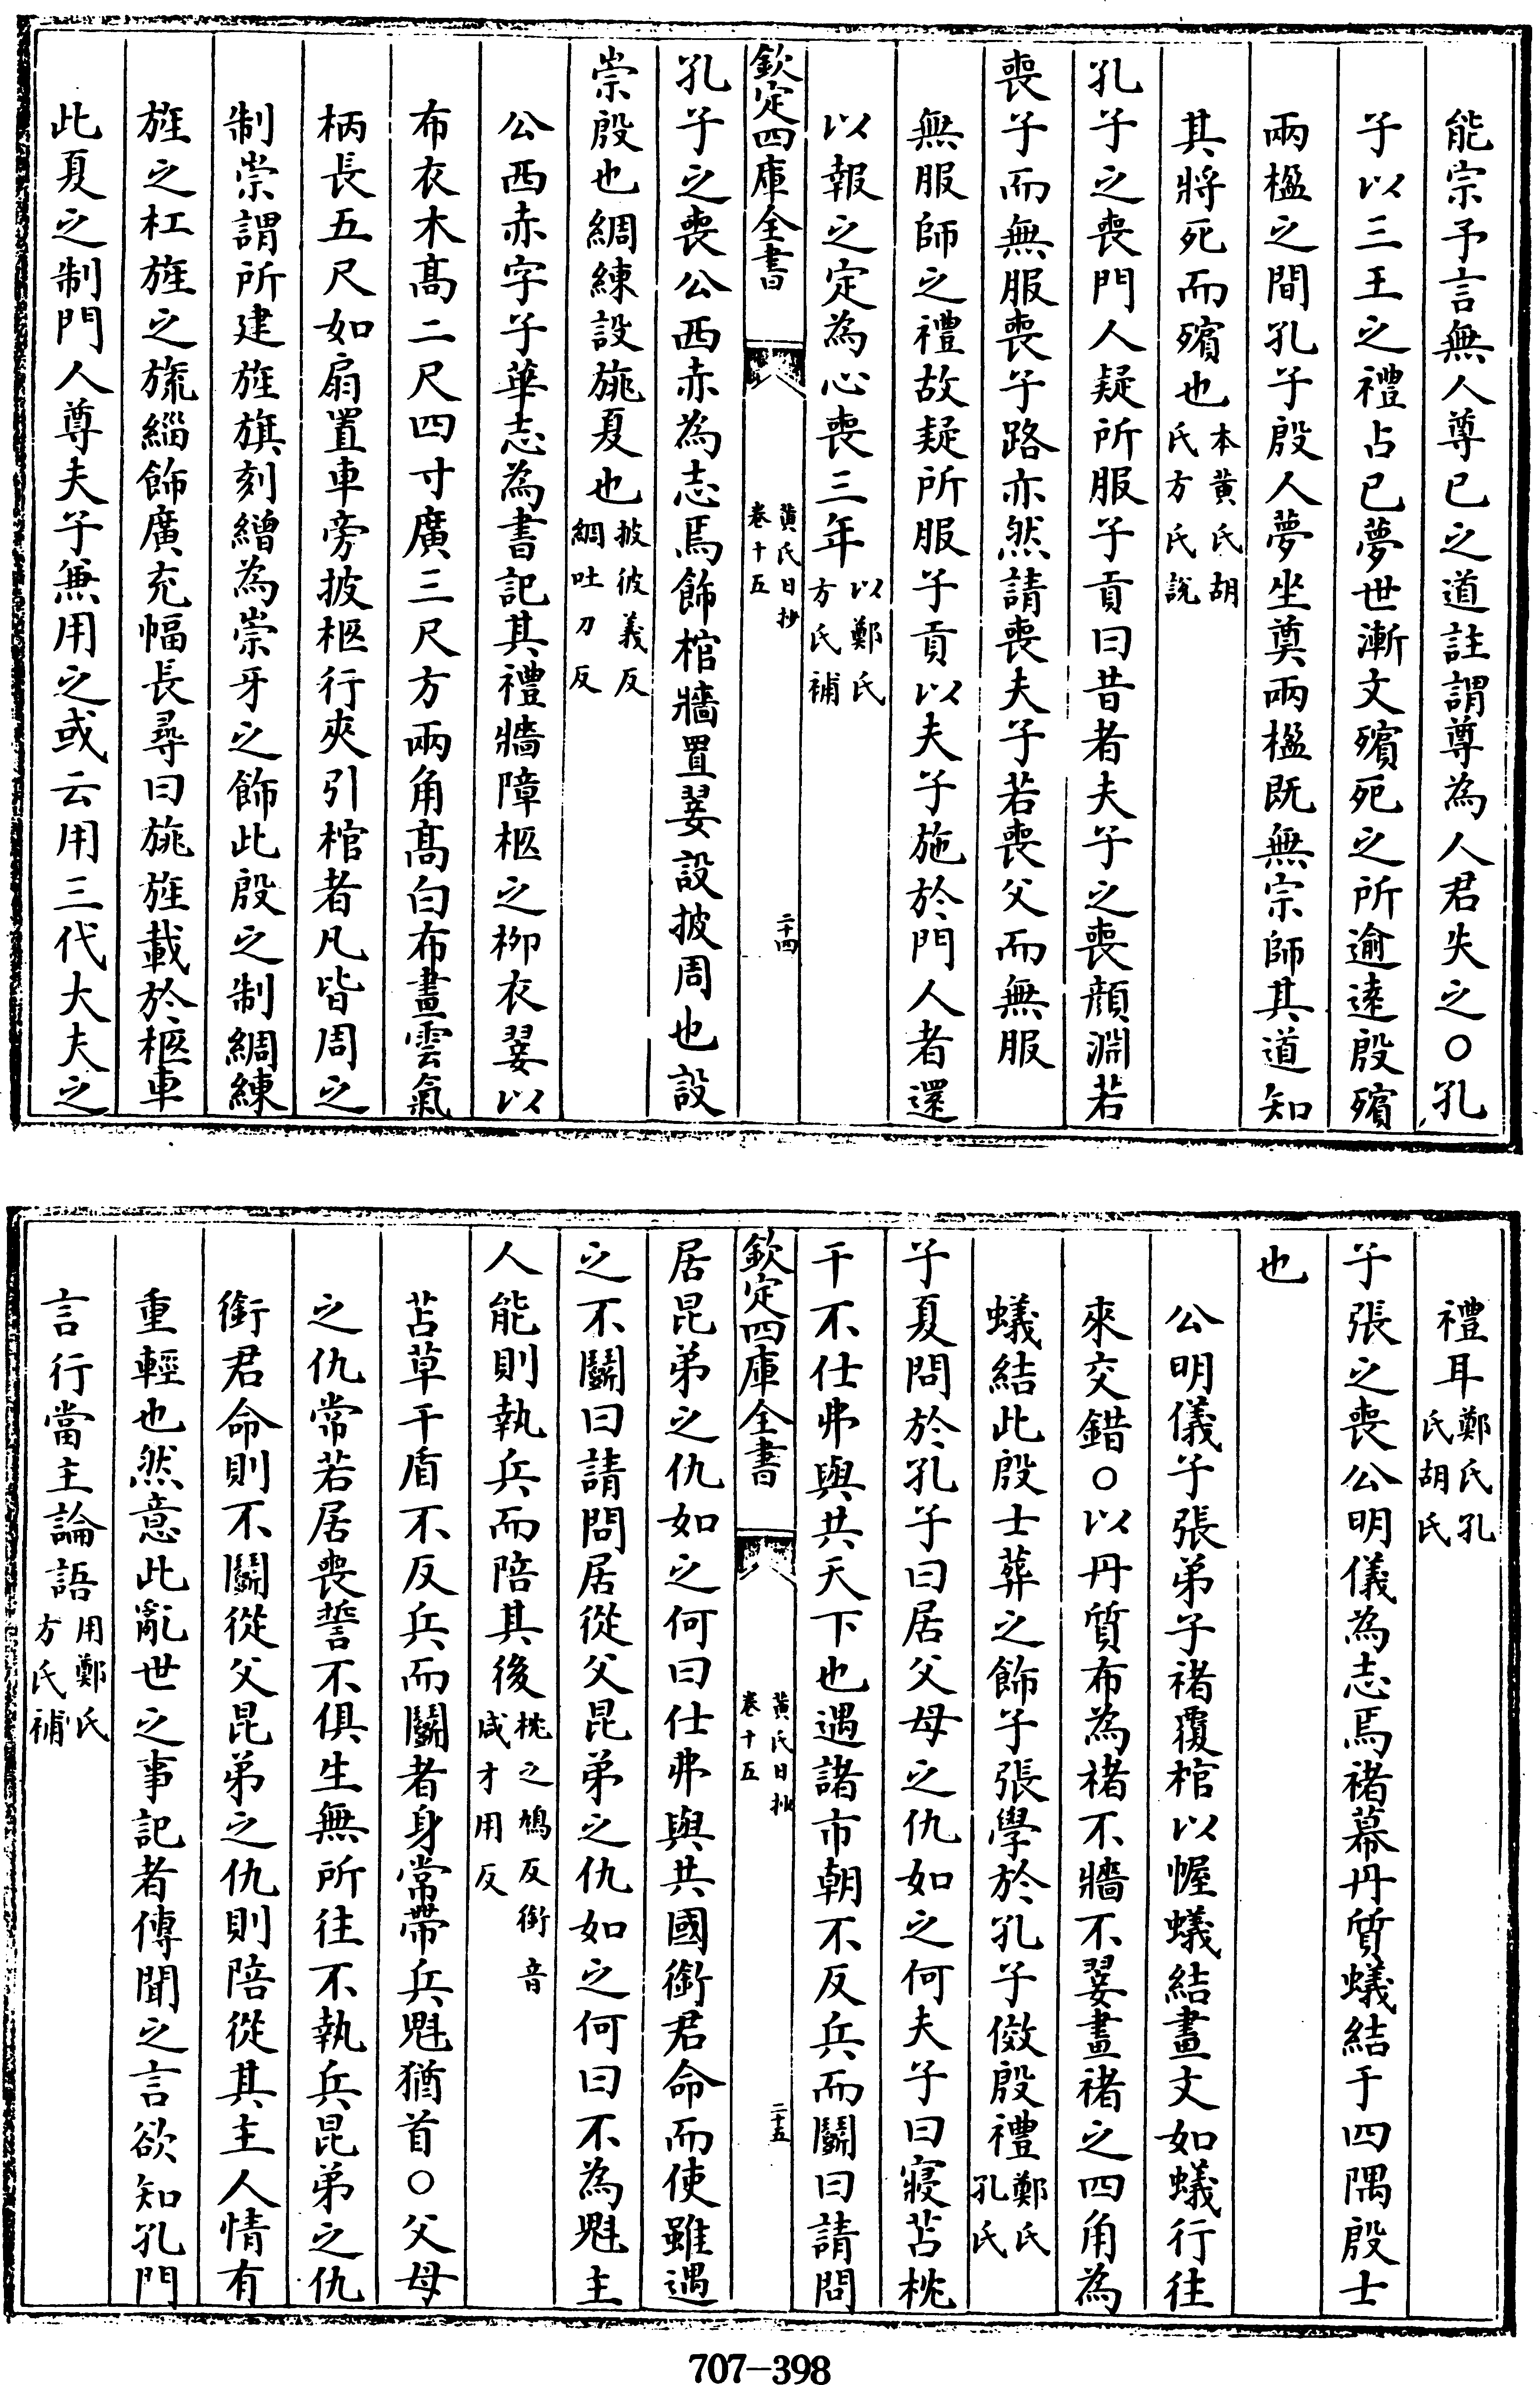 能宗予言無人尊已之道註謂尊為人君失之○孔
子以三王之禮占已夢世漸文殯死之所逾逺殷殯
兩楹之間孔子殷人夢坐奠兩楹既無宗師其道知
其將死而殯也本黄氏胡氏方氏說
孔子之喪門人疑所服子貢曰昔者夫子之喪顔淵若
喪子而無服喪子路亦然請喪夫子若喪父而無服
無服師之禮故疑所服子貢以夫子施於門人者還
以報之定為心喪三年以鄭氏方氏補
欽定四庫全書 黄氏日抄卷十五 二十四
孔子之喪公西赤為志焉飾棺牆置翣設披周也設
崇殷也綢練設旐夏也披彼義反綢吐刀反
公西赤字子華志為書記其禮牆障柩之柳衣翣以
布衣木髙二尺四寸廣三尺方兩角髙白布畫雲氣
柄長五尺如扇置車旁披柩行夾引棺者凡皆周之
制崇謂所建旌旗刻繒為崇牙之飾此殷之制綢練
旌之杠旌之旒緇飾廣充幅長尋曰旐旌載於柩車
此夏之制門人尊夫子兼用之或云用三代大夫之
禮耳鄭氏孔氏胡氏
子張之喪公明儀為志焉褚幕丹質蟻結于四隅殷士
也
公明儀子張弟子褚覆棺以幄蟻結畫文如蟻行往
來交錯○以丹質布為褚不牆不翣畫褚之四角為
蟻結此殷士葬之飾子張學於孔子傚殷禮鄭氏孔氏
子夏問於孔子曰居父母之仇如之何夫子曰寢苫枕
干不仕弗與共天下也遇諸市朝不反兵而鬭曰請問
欽定四庫全書 黄氏日抄卷十五 二十五
居昆弟之仇如之何曰仕弗與共國銜君命而使雖遇
之不鬭曰請問居從父昆弟之仇如之何曰不為魁主
人能則執兵而陪其後枕之鴆反銜音咸才用反
苫草干盾不反兵而鬭者身常帶兵魁猶首○父母
之仇常若居喪誓不俱生無所往不執兵昆弟之仇
銜君命則不鬭從父昆弟之仇則陪從其主人情有
重輕也然意此亂世之事記者傳聞之言欲知孔門
言行當主論語用鄭氏方氏補
707-398